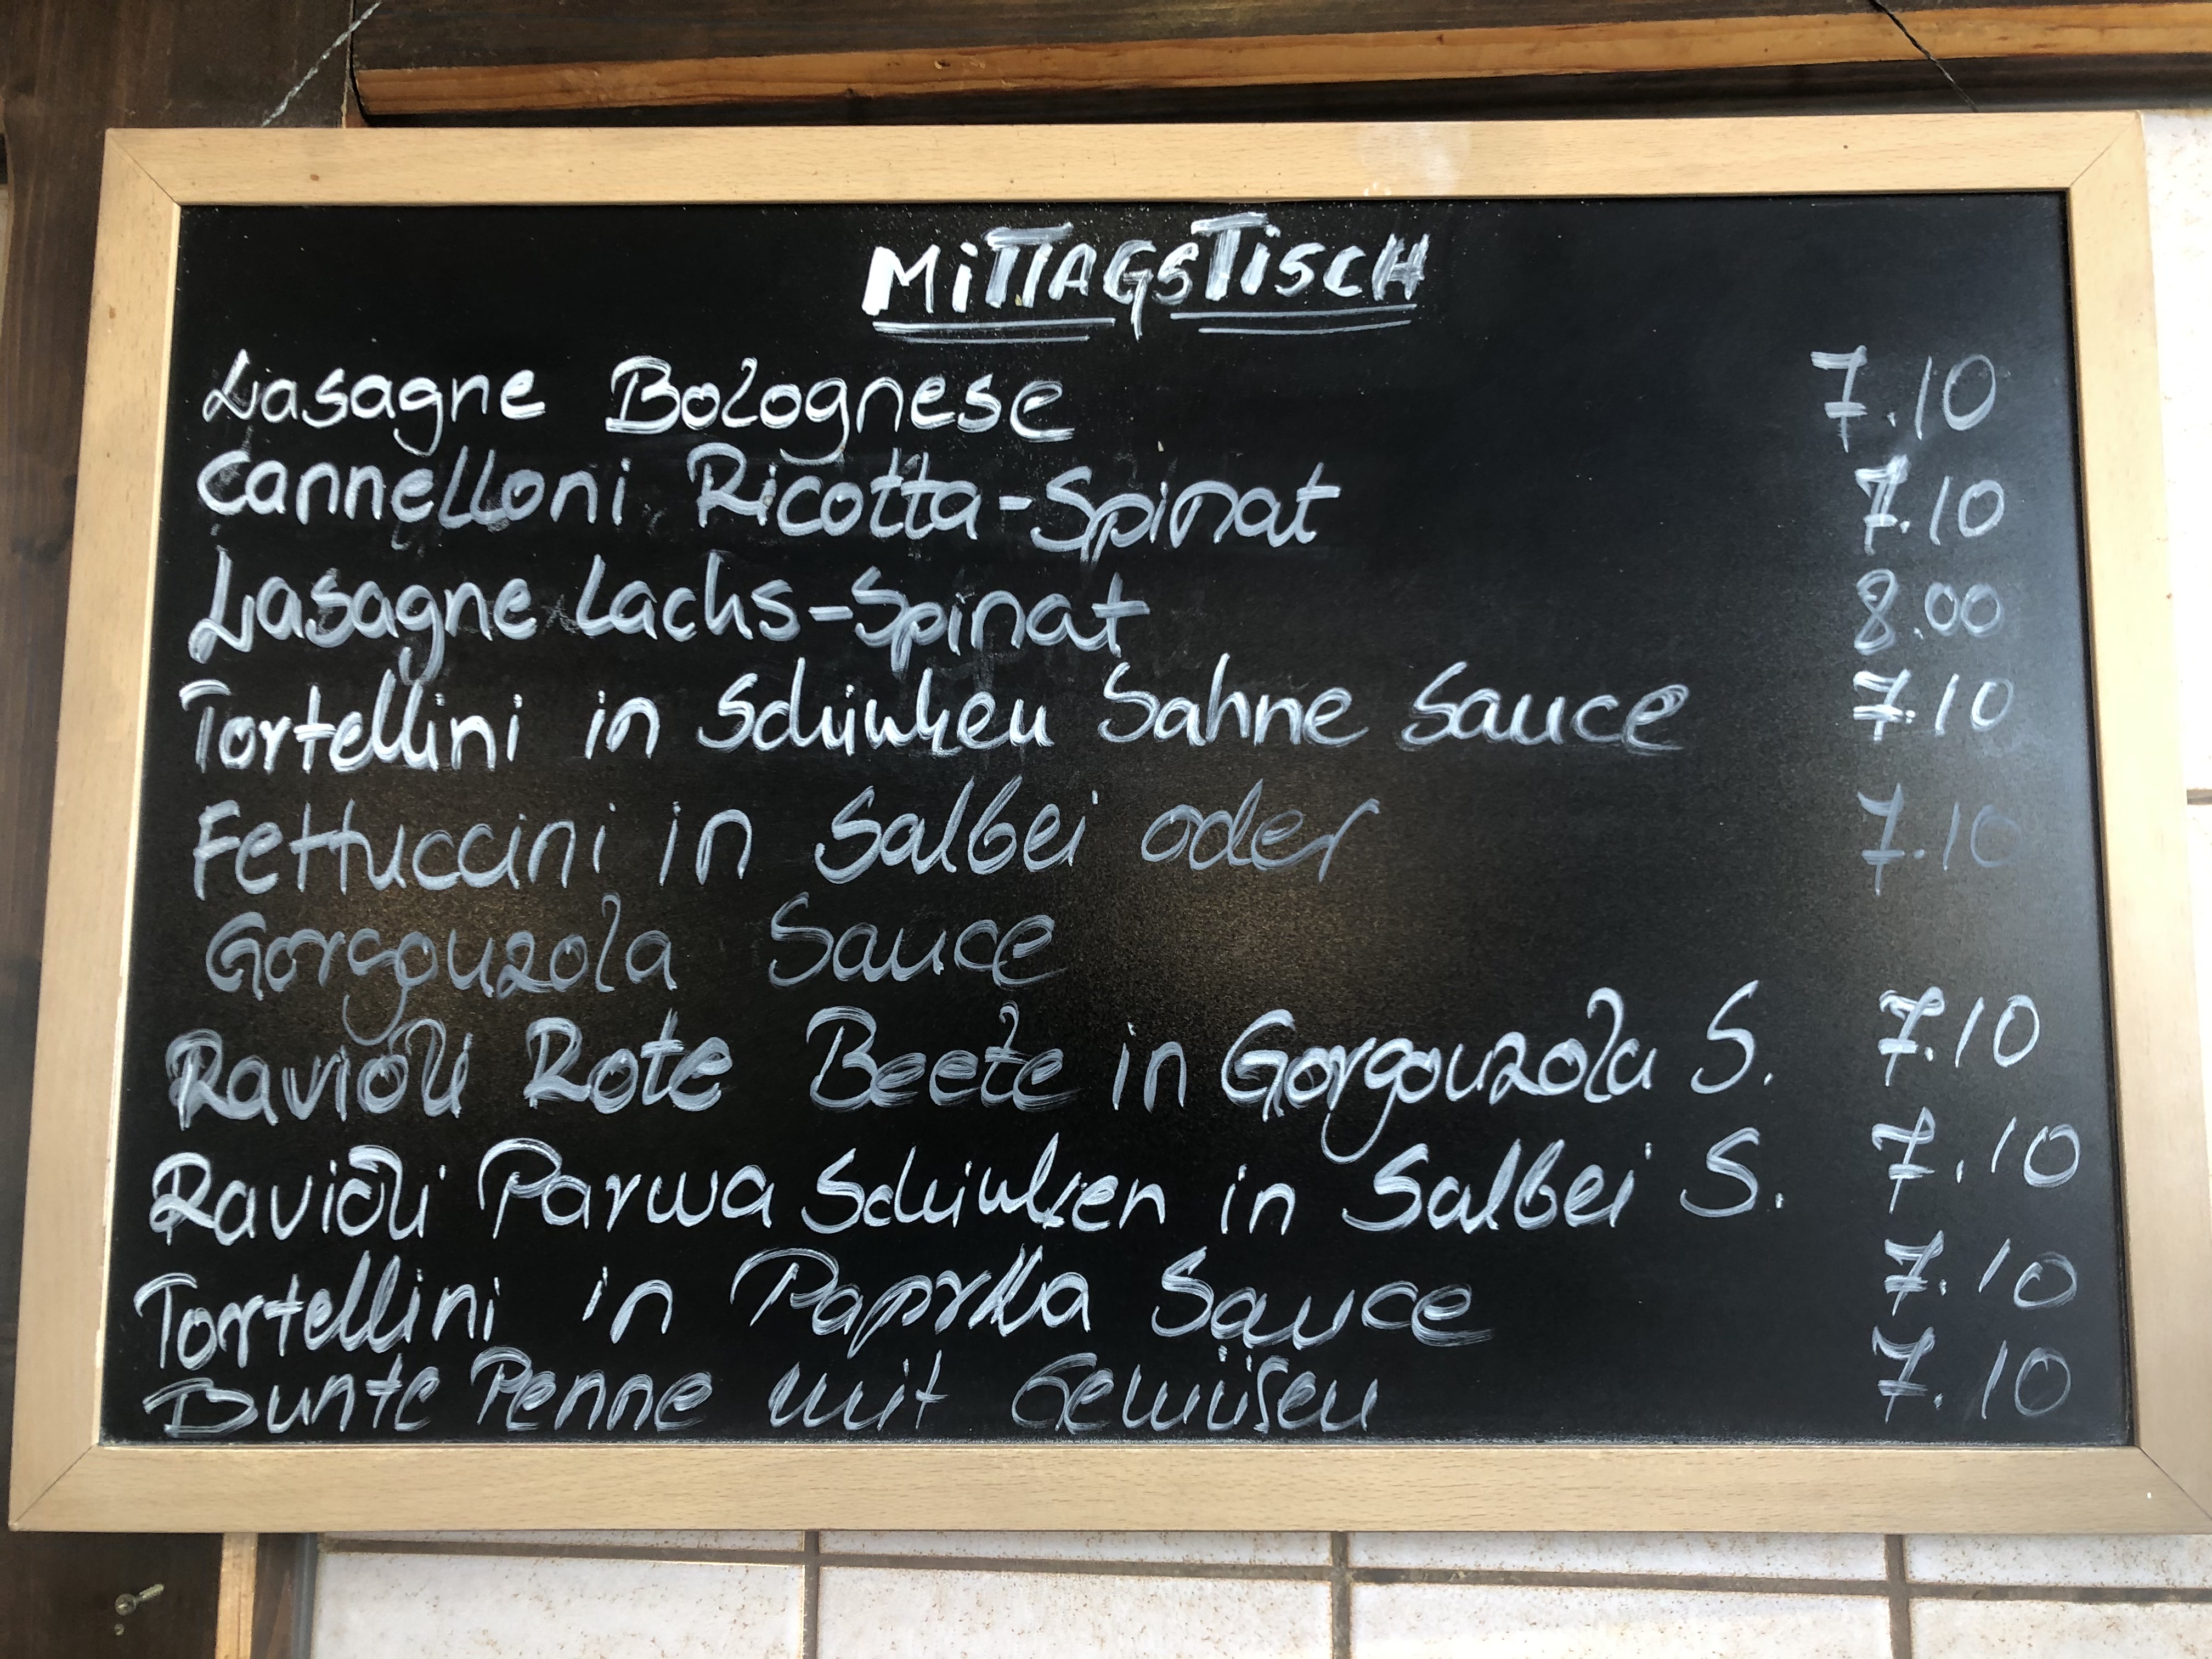 MITTAGSTISCH
Lasagne Bolognese 7.10
Cannelloni Ricotta-Spinat 7.10
Lasagne Lachs-Spinat 8.00
Tortellini in Schinken Sahne Sauce 7.10
Fettuccini in Salbei oder 7.10
Gorgonzola Sauce
Ravioli Rote Beete in Gorgonzola S. 7.10
Ravioli Parma Schinken in Salbei S. 7.10
Tortellini in Paprika Sauce 7.10
Bunte Penne mit Gemüsen 7.10